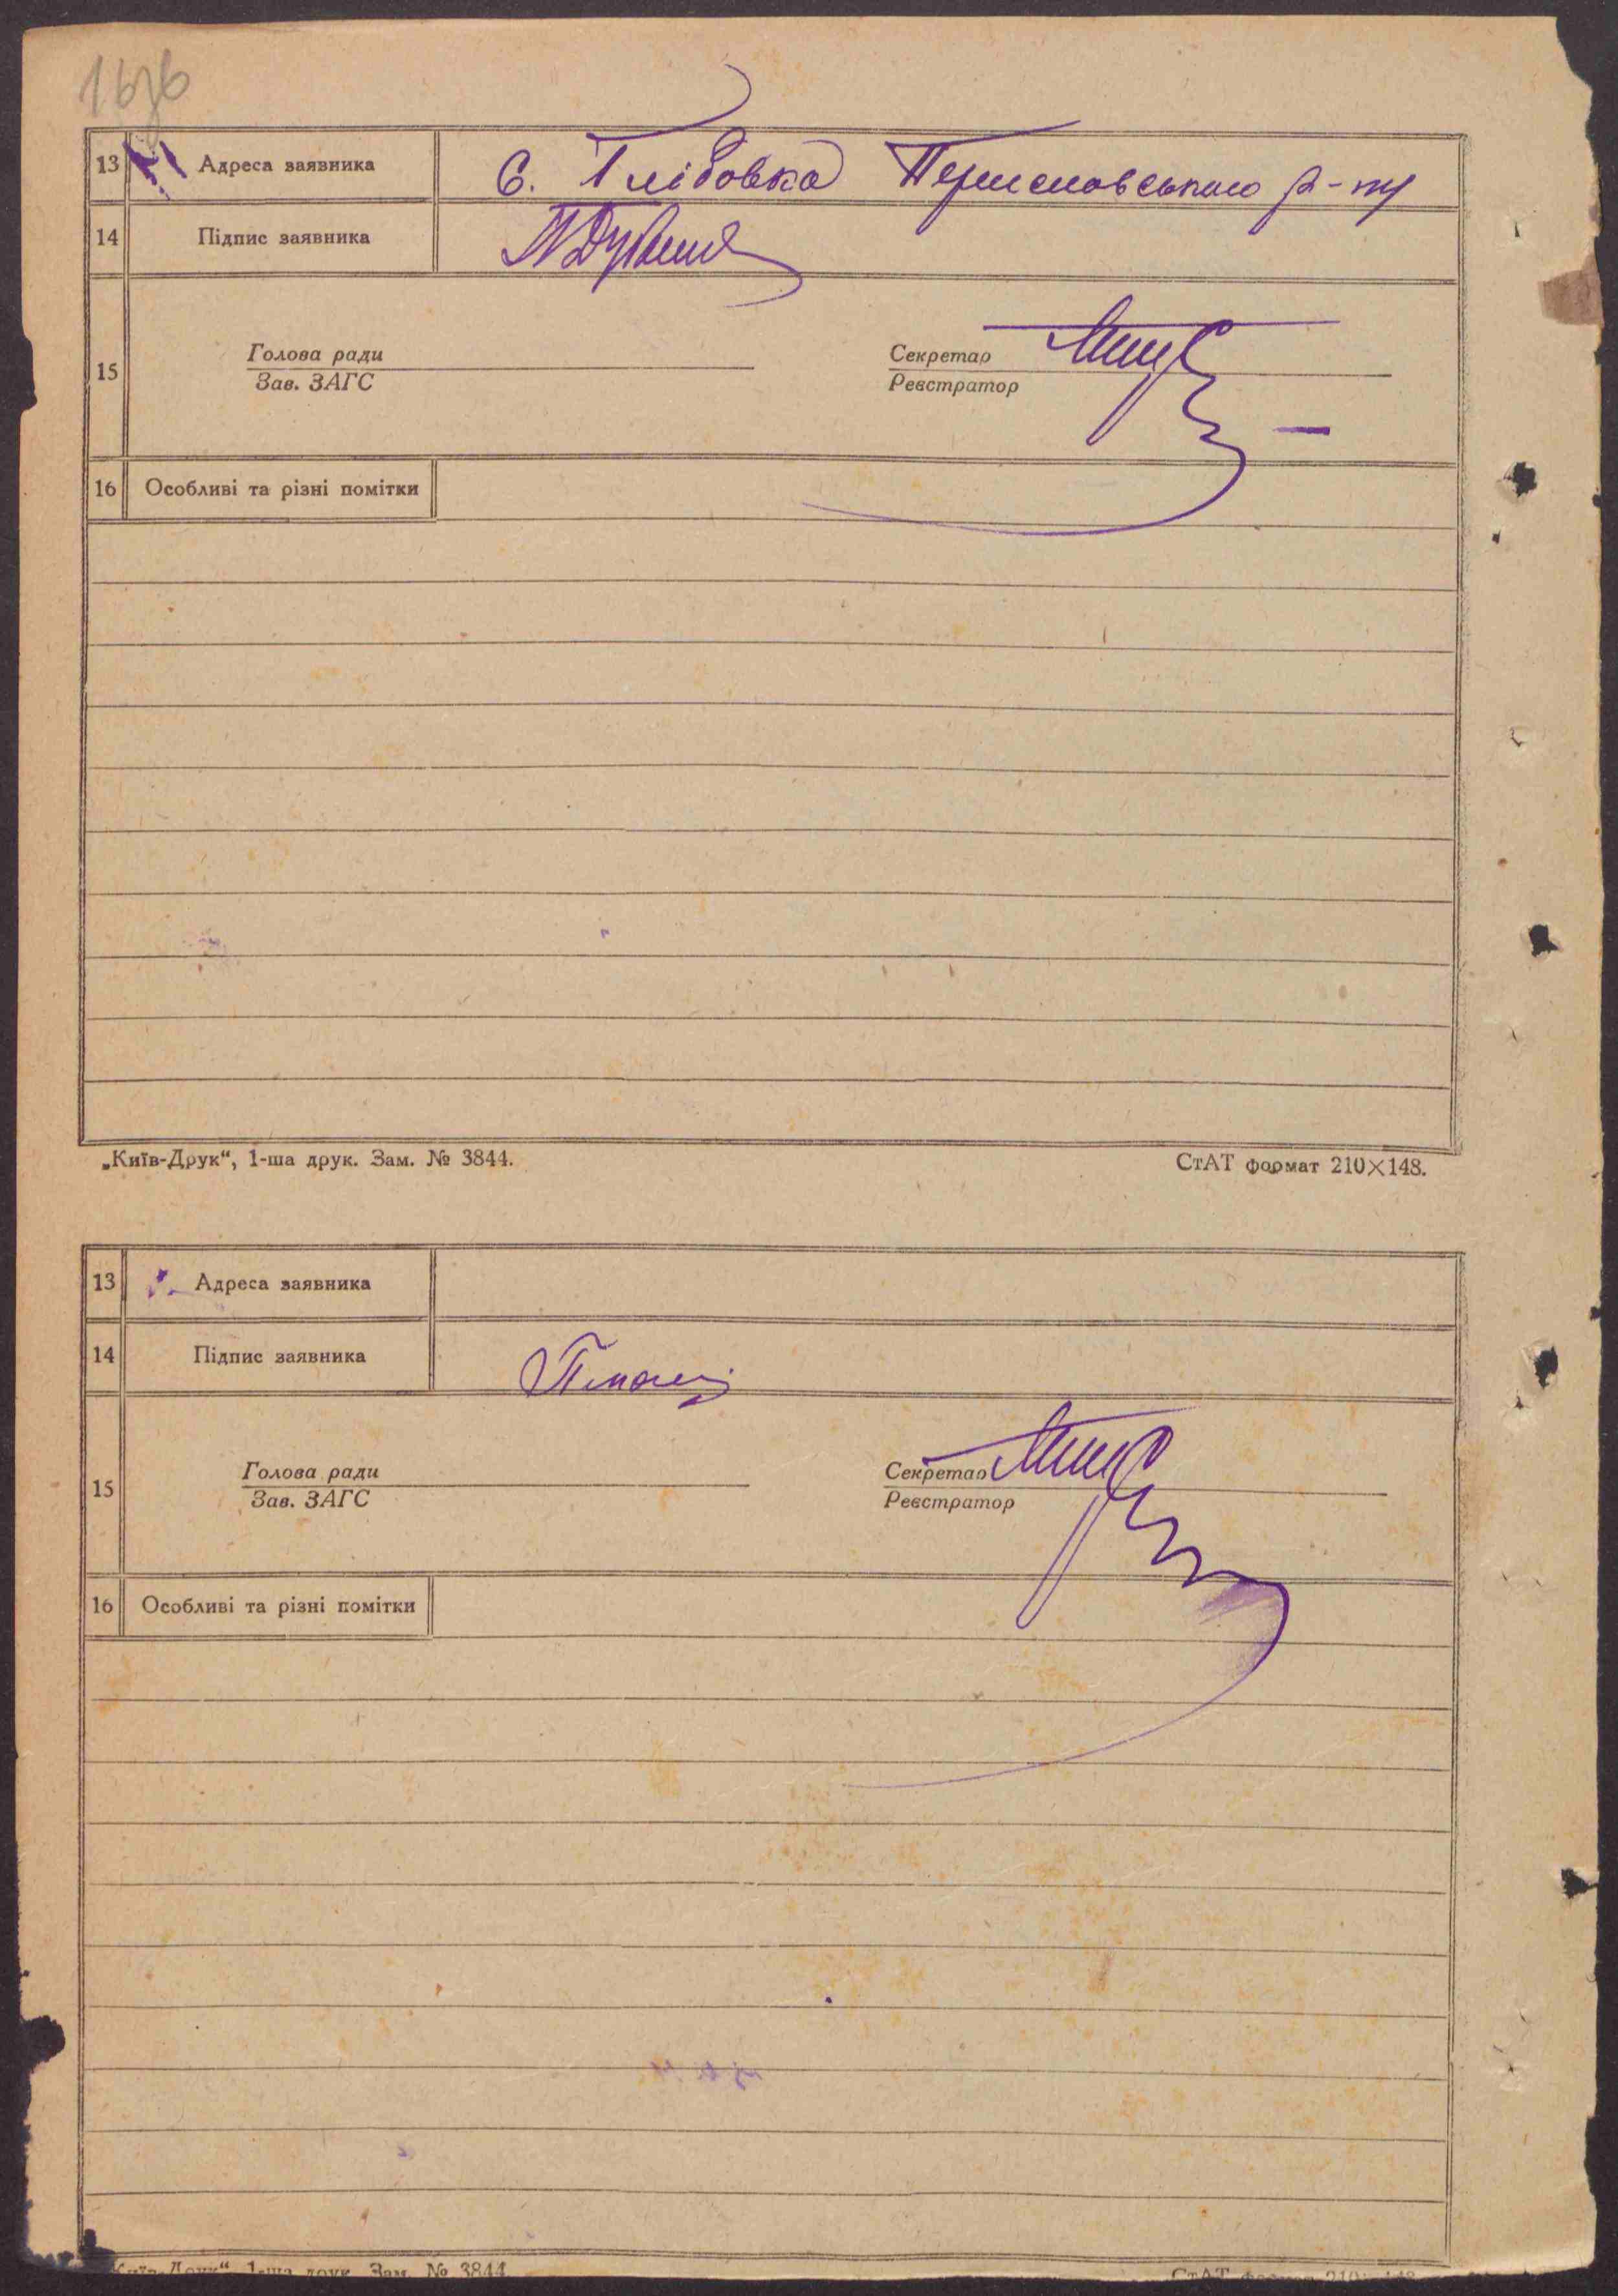 13 Адреса заявника с. Глібовка р-ну
14 Підпис заявника
15 Голова ради Секретар
Зав. ЗАГС Реєстратор
16 Особливі та різні помітки
„Київ-Друк“, 1-ша друк. Зам. № 3844. СтАТ формат 210×148.
13 Адреса заявника
14 Підпис заявника
15 Голова ради Секретар
Зав. ЗАГС Реєстратор
16 Особливі та різні помітки
„Київ-Друк“, 1-ша друк. Зам. № 3844. СтАТ формат 210×148.